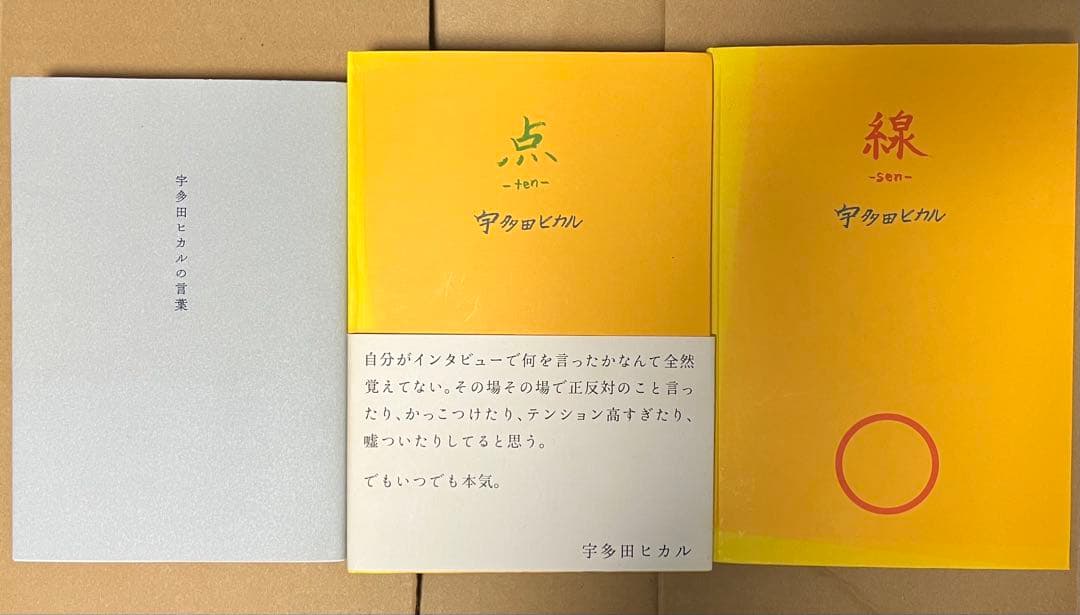 宇多田ヒカルの言葉
点
-ten-
宇多田ヒカル
自分がインタビューで何を言ったかなんて全然
覚えてない。その場その場で正反対のこと言っ
たり、かっこつけたり、テンション高すぎたり、
嘘ついたりしてると思う。
でもいつでも本気。
宇多田ヒカル
線
-sen-
宇多田ヒカル